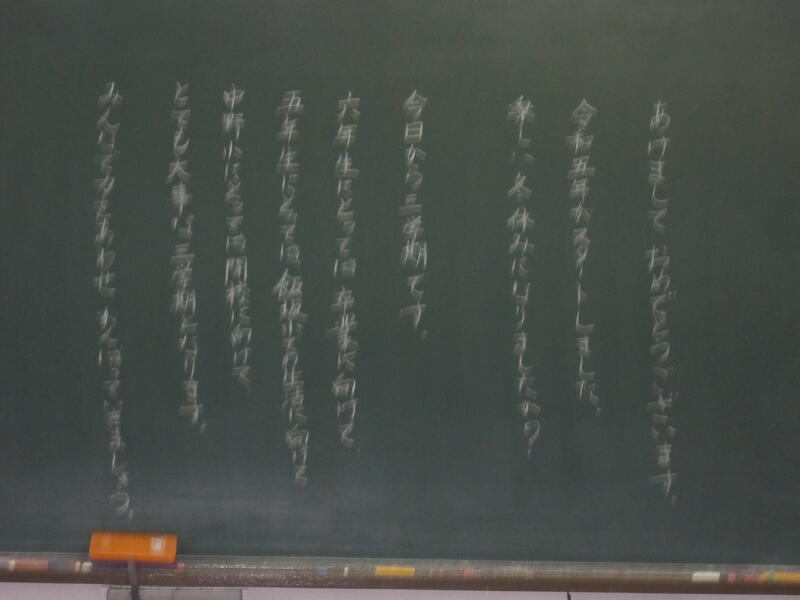 あけましておめでとうございます。
令和五年がスタートしました。
楽しい冬休みになりましたか?
今日から三学期です。
六年生にとっては卒業に向けて
五年生にとっては飯坂小の生活に向けて
中野小にとっては閉校に向けて
とても大事な三学期となります。
みんなで力をあわせ がんばっていきましょう。